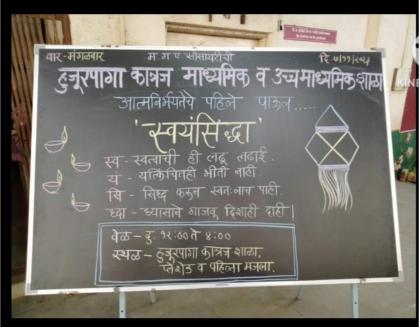 वार-मंगळवार म.ग.ए. सोसायटीची दि.७/११/२०२३
हुजूरपागा कात्रज माध्यमिक व उच्चमाध्यमिक शाळा
आत्मनिर्भयतेचे पहिले पाऊल.....
'स्वयंसिद्धा'
स्व - स्वत्वाची ही लढू लढाई.
यं - यत्किंचितही भीती नाही.
सि - सिध्द करून स्वतःलाच पाही.
ध्दा - ध्यासाने गाजवू दिशाही दाही।
वेळ - दु. १२:०० ते ४:००
स्थळ - हुजूरपागा कात्रज शाळा,
व पहिला मजला.